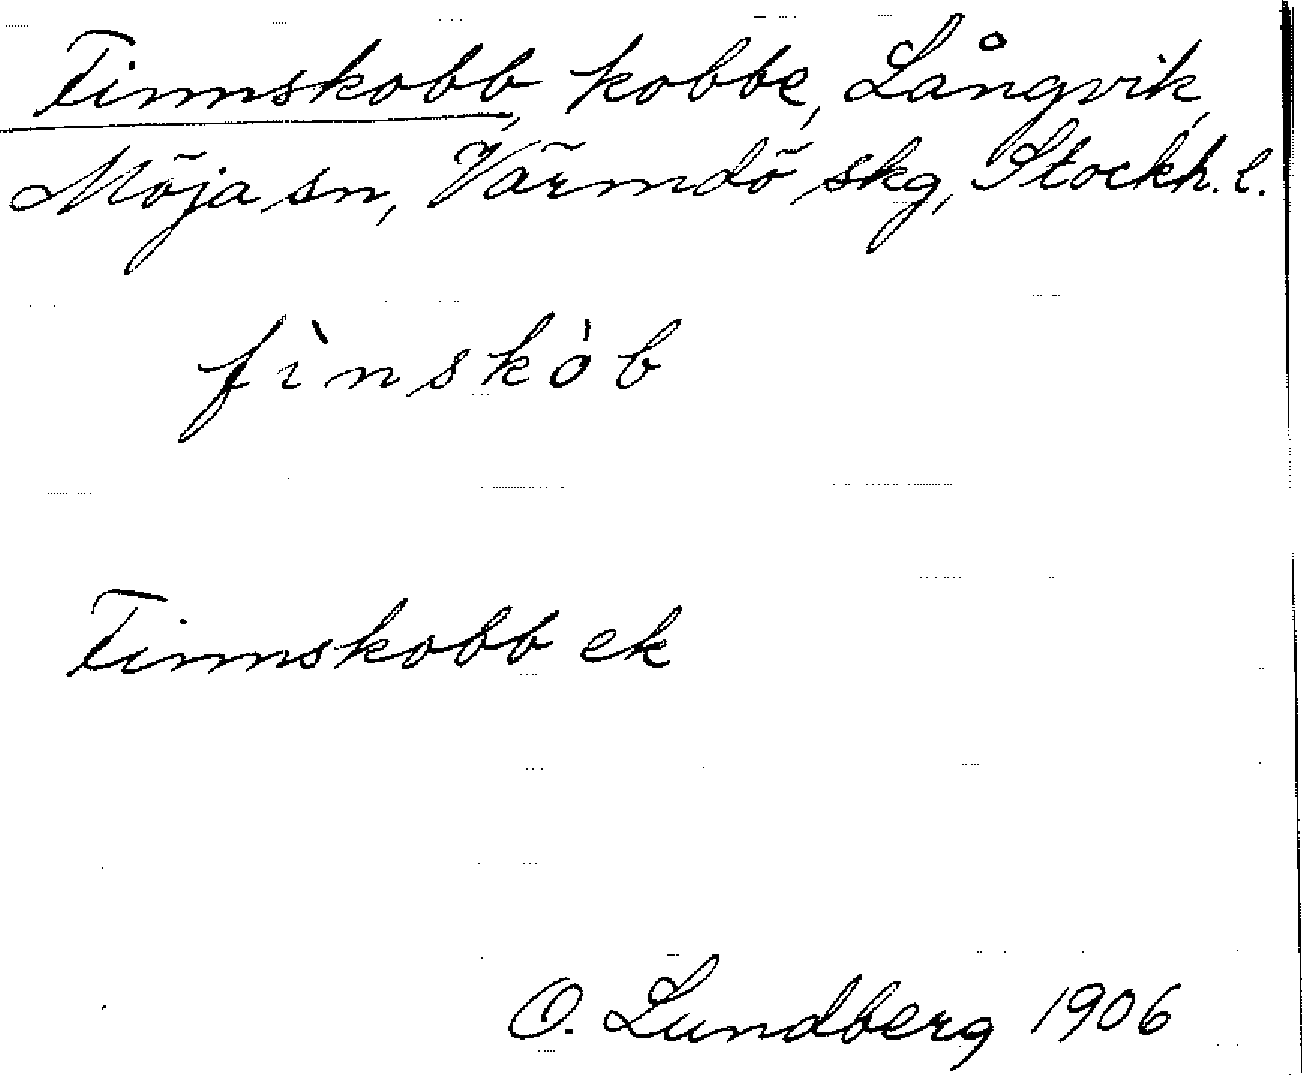 Finnskobb, kobbe, Långvik,
Möja sn, Värmdö skg, Stockh. l.
fìnskòb
Finnskobb ek
O. Lundberg 1906